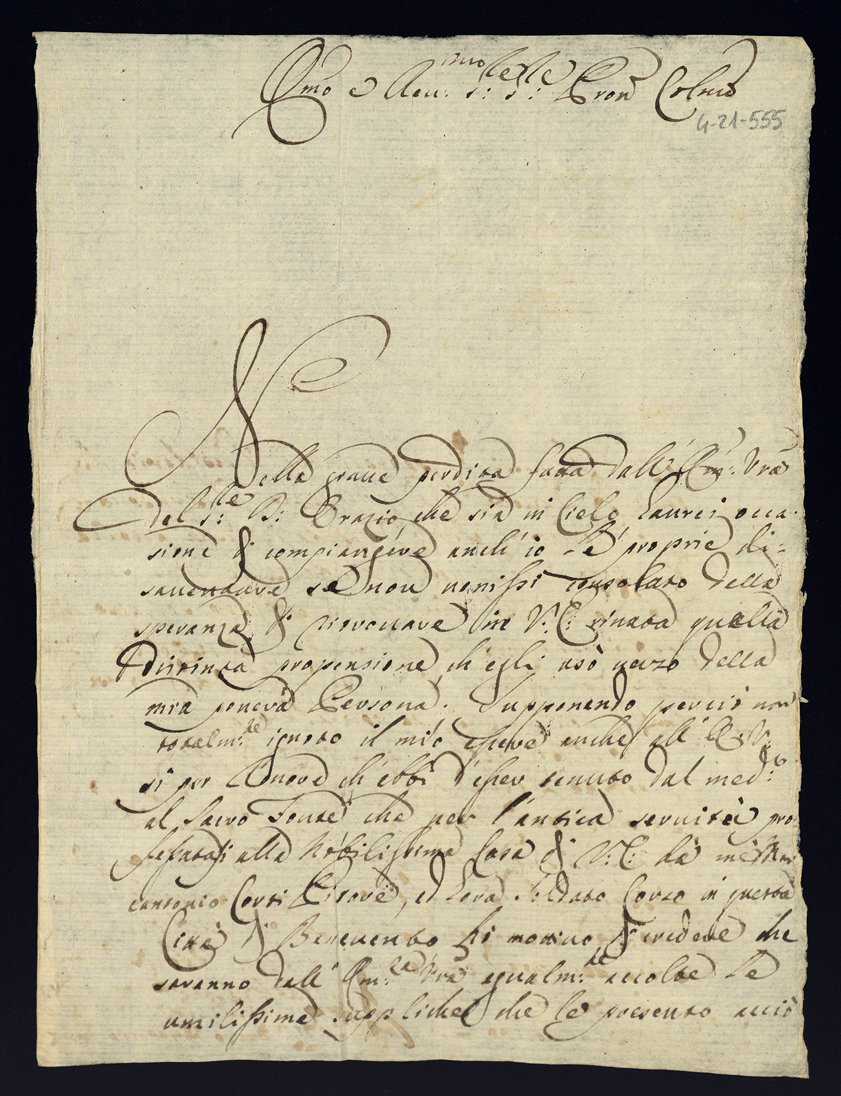 Em̃o e Reu:mo S:re S:re Pron Colmo
4-21-555
Nella graue perdita fatta dall' Em: Vra
del S:re D: Orazio che sia in Cielo haurei occa-
sione di compiangere anch' io le proprie di-
sauenture se non uenissi consolato della
speranza di ritrouare in V: E: rinata quella
distinta propensione ch' egli usò uerso della
mia pouera Persona. Supponendo perciò non
totalm:te ignoto il mio essere anche all' E: V:
si per l' honore ch' ebbi d' esser tenuto dal med:o
al Sacro Fonte che per l' antica seruitù pro
fessatasi alla Nobilissima Casa di V: E: da
antonio Corsi, ed hora Soldato Corso in questa
Città di Beneuento hò motiuo di credere che
saranno dall' Em:za Vra egualm:te accolte le
umilissime suppliche che le presento acciò